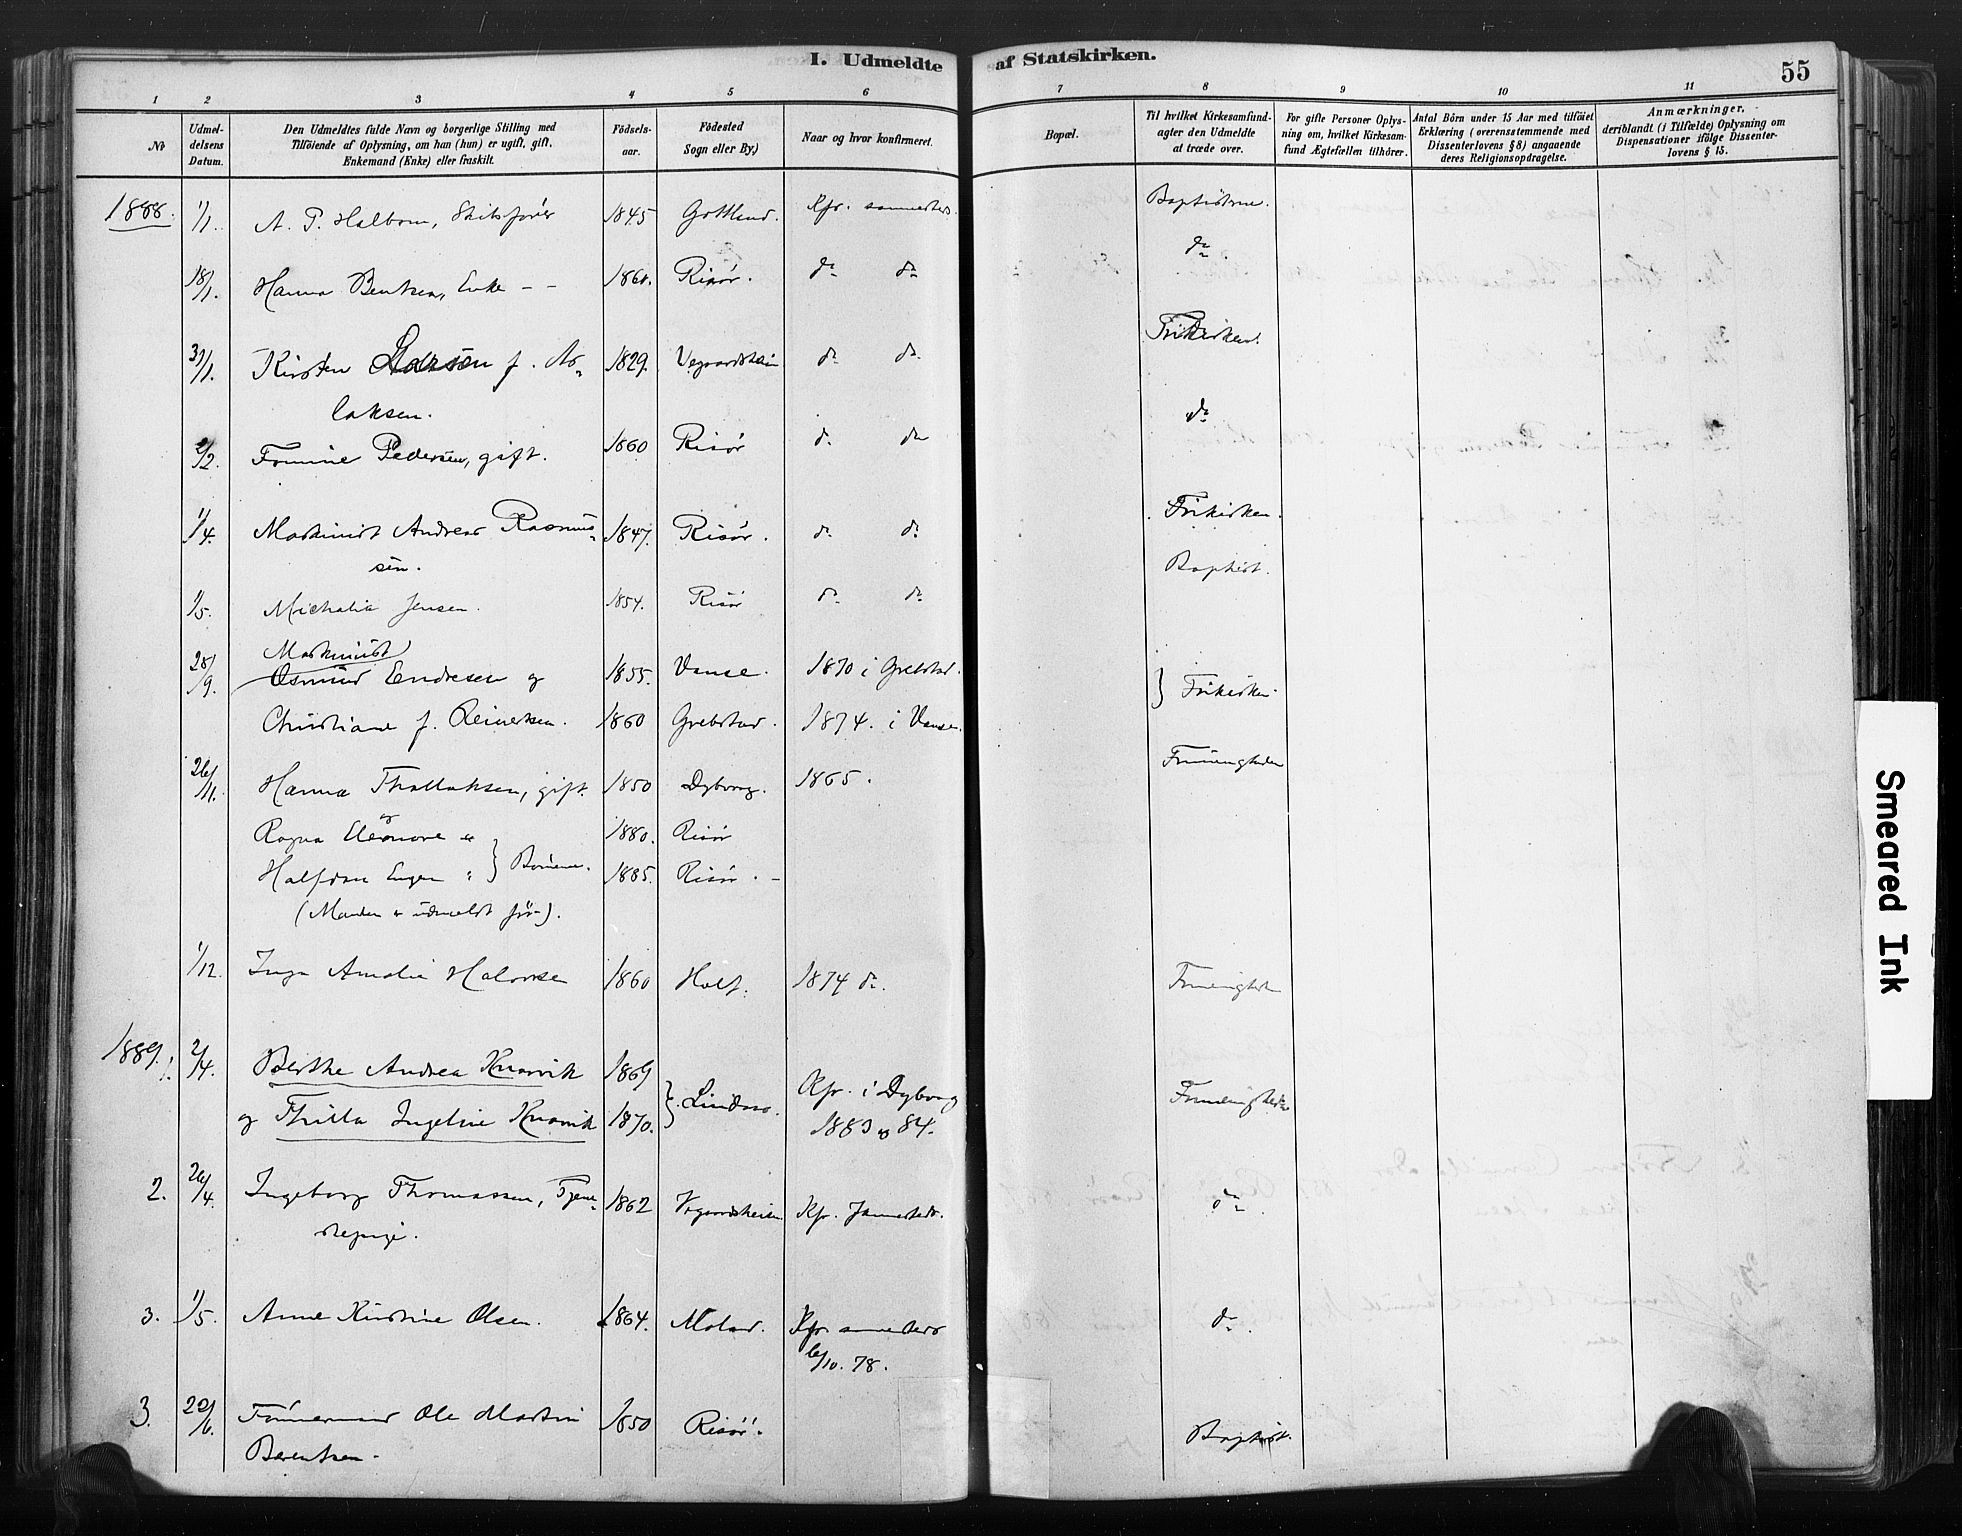 I. Udmeldte af Statskirken.
55
1 2 3 4 5 6 7 8 9 10 11
No
Udmel-
delsens
Datum.
Den Udmeldtes fulde Navn og borgerlige Stilling med
Tilföiende af Oplysning, om han (hun) er ugift, gift,
Enkemand (Enke) eller fraskilt.
Födsels-
aar.
Födested
Sogn eller By.)
Naar og hvor konfirmeret.
Bopæl.
Til hvilket Kirkesamfund-
agter den Udmeldte
at træde over.
For gifte Personer Oplys-
ning om, hvilket Kirkesam-
fund Ægtefællen tilhörer.
Antal Börn under 15 Aar med tilföiet
Erklæring (overensstemmende med
Dissenterlovens § 8) angaaende
deres Religionsopdragelse.
Anmærkninger,
deriblandt (i Tilfælde) Oplysning om
Dispensationer ifölge Dissenter-
lovens § 15.
1888. 1/1. A. P. Holbom, Skibsförer 1845 Gottland. Kfr. sammesteds. Baptisterne.
18/1. Hanna Bentsen, Enke - - 1860. Risör. do do do
31/1. Kirsten Larsen f. As- 1829. Vegaardsheien do do Frikirken.
laksen.
2/2. Fomine Pedersen, gift. 1860 Risör do do do
1/4. Martinius Andreas Rasmus- 1847. Risör. do do Frikirken.
sen.
1/5. Michalia Jensen. 1854. Risör do do Baptist.
Martinius
28/9. Osmund Endresen og 1855. Vanse. 1870 i Grebstad. } Frikirken.
Christiane f. Reinertsen. 1860 Grebstad. 1874. i Vanse.
26/11. Hanna Thollaksen, gift 1850 Dybvaag. 1865. Frimenigheden
Ragna Eleonore og 1880. Risör
Halfdan Eugen } Börnene. 1885. Risör. -
(Manden er udmeldt för).
1/12. Inga Amalie Halvorsen 1860 Holt. 1874 do. Frimenigheden
1889. 1. 2/4. Berthe Andrea Knarvik 1869 } Lindaas. Kfr. i Dybvaag Frimenigheden
og Thilla Ingeline Knarvik 1870. 1883 og 84.
2. 26/4. Ingeborg Thomassen, Tjene- 1862 Vegaardsheien. Kfr. sammesteds. do.
stepige.
3. 1/5. Anne Kirstine Olsen. 1864. Moland. Kfr. sammesteds do.
6/10. 78.
3. 22/6. Tömmermand Ole Martin 1850 Risör. Baptist.
Berentsen.
Smeared Ink